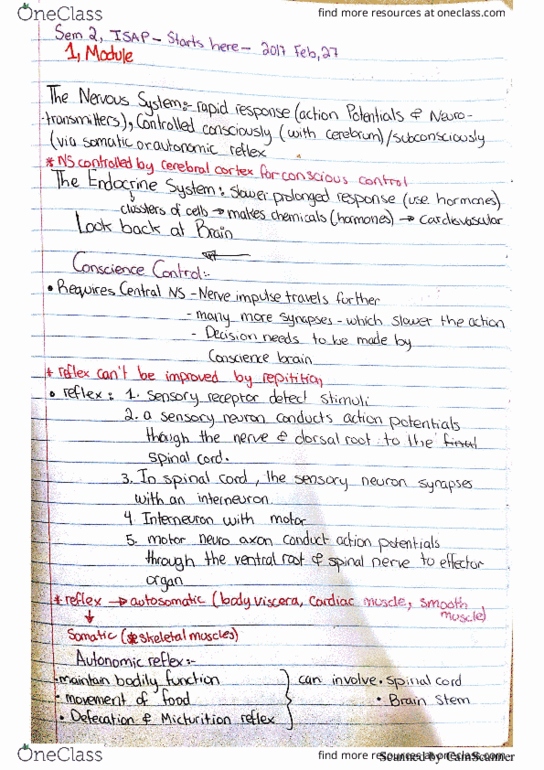 OneClass
find more resources at oneclass.com
Sem 2, ISAP - Starts here - 2017 Feb, 27
1, Module
The Nervous System:- rapid response (action Potentials & Neuro-
-transmitters), Controlled consciously (with cerebrum)/subconsciously
(via somatic or autonomic reflex
* NS controlled by cerebral cortex for conscious control
The Endocrine System: slower prolonged response (use hormones)
clussters of cells → makes chemicals (hormones) → cardiovascular
Look back at Brain
Conscience Control:-
• Requires Central NS - Nerve impulse travels further
- many more synapses - which slower the action
- Decision needs to be made by
Conscience brain
* reflex can't be improved by repitition
• reflex: 1. Sensory receptor detect stimuli
2. a sensory neuron conducts action potentials
through the nerve & dorsal root to the final
spinal cord.
3. In spinal cord, the sensory neuron synapses
with an interneuron.
4. Interneuron with motor
5. motor neuro axon conduct action potentials
through the ventral root & spinal nerve to effector
organ
* reflex → autosomatic (body viscera, Cardiac muscle, smooth
muscle)
Somatic (skeletal muscles)
Autonomic reflex:-
• maintain bodily function
• movement of food
• Defecation & Micturition reflex
can involve • spinal cord
• Brain Stem
OneClass
find more resources at oneclass.com
Scanned by CamScanner